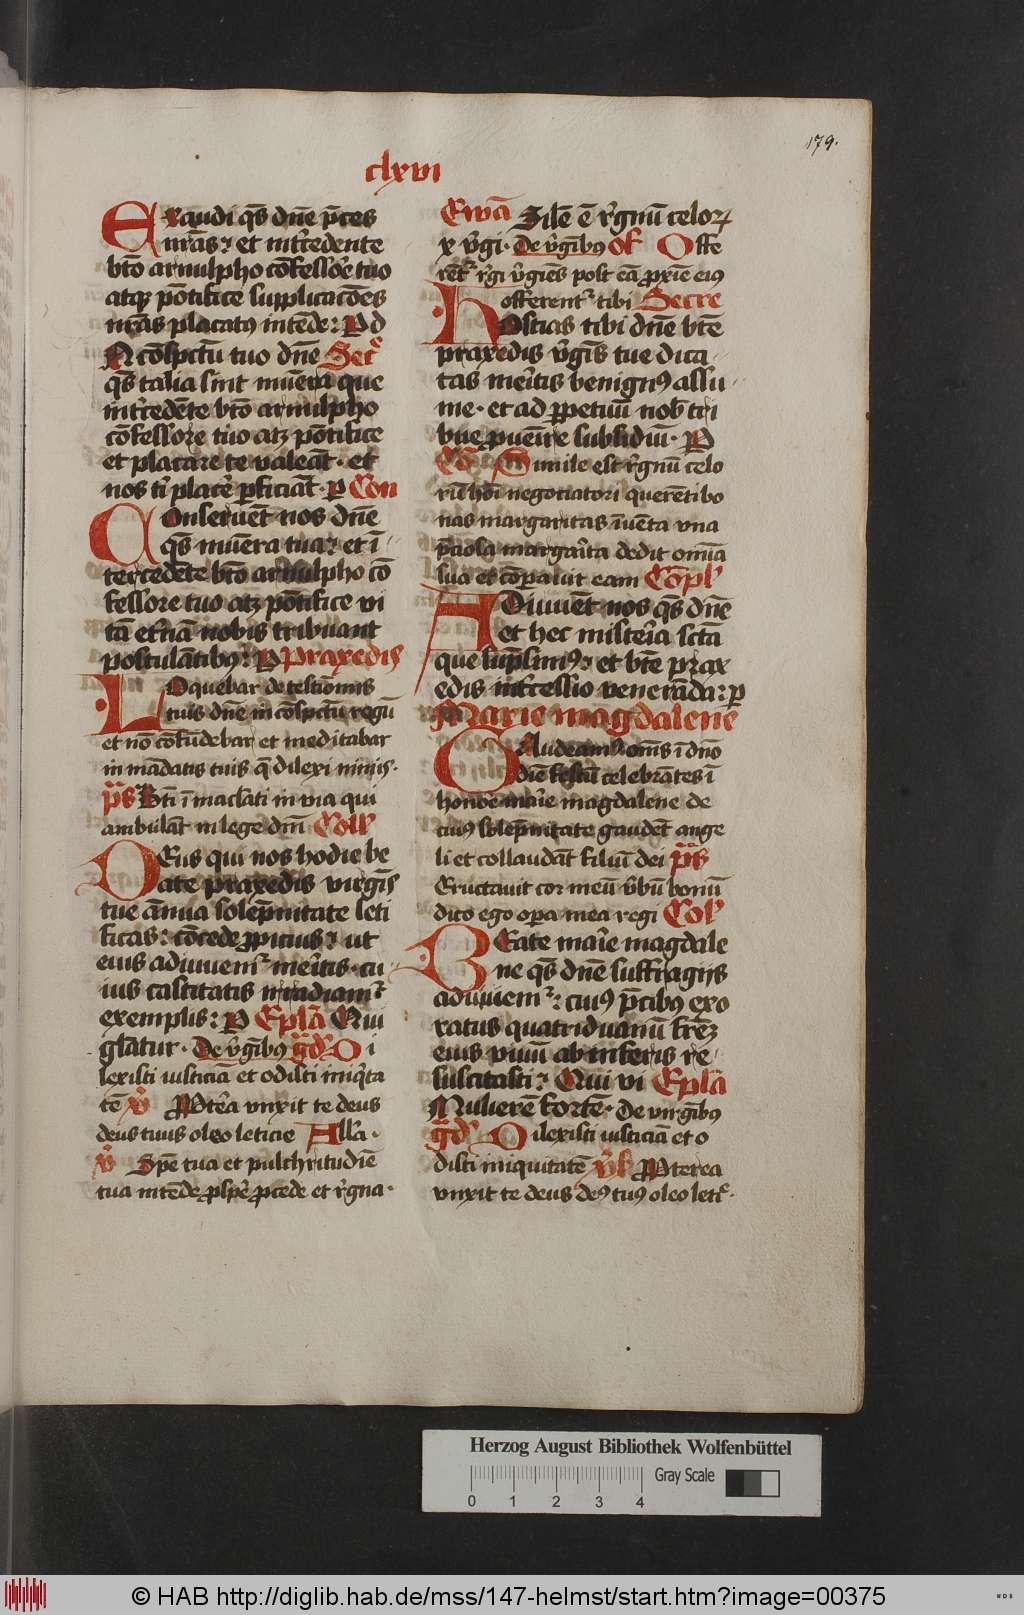 179.
clxvi
Exaudi qs̄ dn̄e p̄ces
nrās: et int̓cedente
bt̄o arnulpho cōfessōe tuo
atqz pōtifice supplicacōes
nrās placatus intēde: P d
N cōspc̄tu tuo dn̄e Sec̓
qs̄ talia sint mun̄era que
int̓cedēte bt̄o arnulpho
cōfessore tuo atz pōtifice
et placare te valeāt · et
nos t̄i placēr ꝑficiāt · p Con
Onseruēt nos dn̄e
qs̄ mun̄era tua: et ī
tercedēte bt̄o arnulpho cō
fessore tuo atz pōtifice vi
tā et̓nā nobis tribuant
postulātibus: P Praxedis
LOquebar de testiōnius
tuis dn̄e in cōspc̄tu regū
et nō cōfūdebar et meditabar
in mādatis tuis q̄ dilexi nimis ·
ps̄ Bt̄i īmaclati in via qui
ambulāt in lege dn̄i Coll̓
DEus qui nos hodie be
ate praxedis virgīs
tue ānua solep̄nitate leti
ficas: cōcede ꝓpicius: ut
eius adiuuem̓ mēritis · cu
ius castitatis irradiam̓
exemplis: P Epl̄a Qui
gl̄atur · De v̓gībus gd̄r D i
lexisti iusticiā et odisti iniq̓ta
tē v̓ Ppt̄ea vnxit te deus
deus tuus oleo leticie All̄a ·
v̓ Spē tua et pulchritudīe
tua intēde ꝓspēr ꝓcede et r̓gna ·
Ewā Silē ē r̓gnū celoꝝ
x v̓gi · De v̓gībus of̄ Offe
rēt̓ r̓gi v̓gīes post eā ꝓxīe eius
offerent̓ tibi Secre
HOstias tibi dn̄e bt̄e
praxedis v̓gīs tue dica
tas mēritis benignꝰ assu
me · et ad ꝑpetuū nob̄ tri
bue ꝓuenīre subsidiū · P
Cō Simile est r̓gnū celo
rū hōi negociatori querēti bo
nas margaritas īuēta vna
p̄ciosa margarīta dedit omīa
sua et cōꝑauit eam Cōpl̓
ADiuuēt nos qs̄ dn̄e
et hec mistēria sctā
que sūpsimꝰ: et bt̄e prax
edis int̓cessio venerāda: p
Marie magdalene
GAudeamꝰ om̄s ī dn̄o
diē festū celebrātes ī
honōe mar̄ie magdalene de
cuiꝰ solep̄nitate gaudēt ange
li et collaudāt filiū dei ps̄
Eructauit cor meū v̓bū bonū
dico ego oꝑa mea regi Col̓
BEate mar̄ie magdale
ne qs̄ dn̄e suffragijs
adiuuem̓: cuiꝰ p̄cibꝰ exo
ratus quatriduanū fr̄ez
eius viuū ab inferis re
suscitasti: Qui vi Epl̄a
Mulierē fortē · De virgībus
gd̄r Dilexisti iusticiā et o
disti iniquitatē v̓s̄ Ppterea
vnxit te deus deꝰ tuꝰ oleo let̓ ·
Herzog August Bibliothek Wolfenbüttel
Gray Scale
0 1 2 3 4
© HAB http://diglib.hab.de/mss/147-helmst/start.htm?image=00375